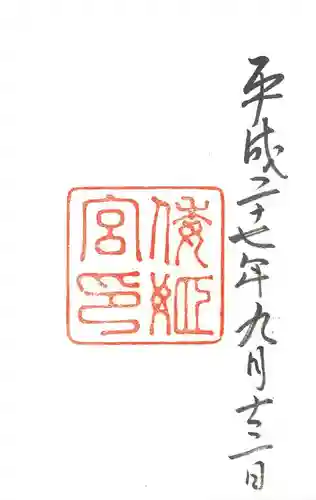 平成二十七年九月十二日
倭姫
宮印